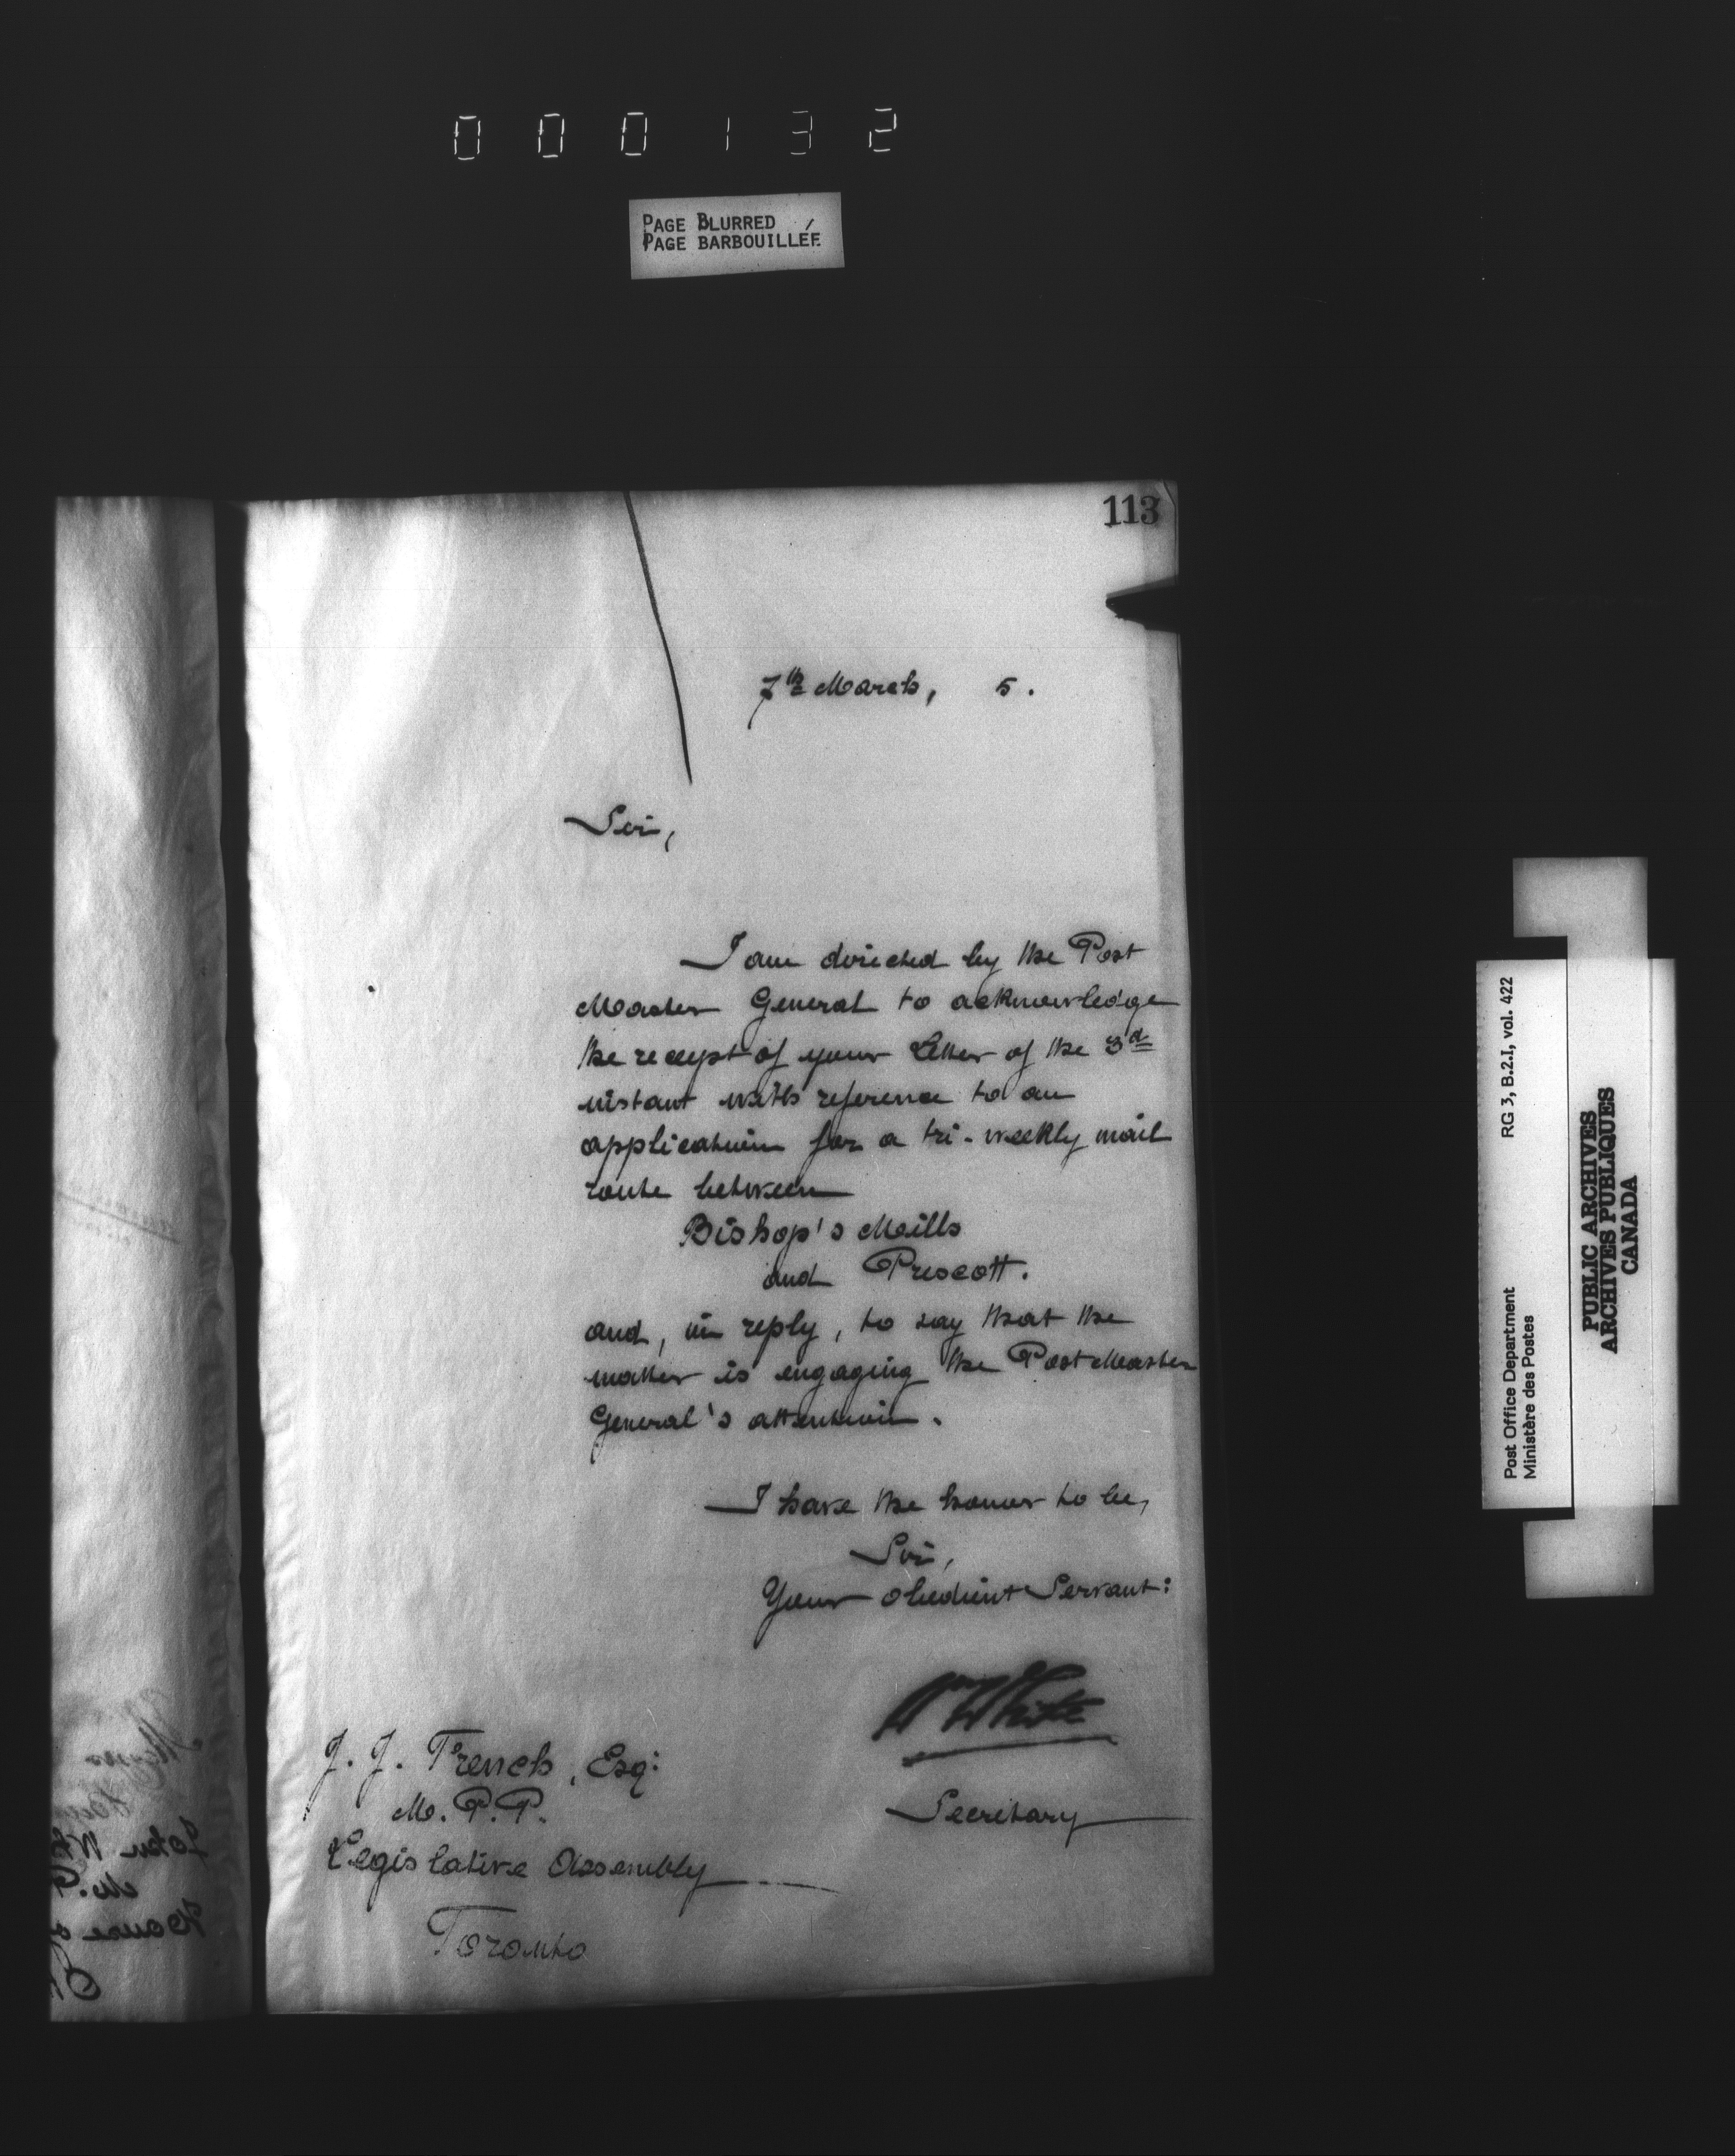 000132
PAGE BLURRED
PAGE BARBOUILLÉE
113
7th March, 5.
Sir,
I am directed by the Post
Master General to acknowledge
the receipt of your letter of the 3d
instant with reference to an
application for a tri-weekly mail
route between
Bishop's Mills
and Prescott.
and, in reply, to say that the
matter is engaging the Post Master
General's attention.
I have the honor to be,
Sir,
Your obedient Servant:
Wm White
Secretary
J. J. French, Esq:
M. P. P.
Legislative Assembly
Toronto
RG 3, B.2.I, vol. 422
Post Office Department
Ministère des Postes
PUBLIC ARCHIVES
ARCHIVES PUBLIQUES
CANADA